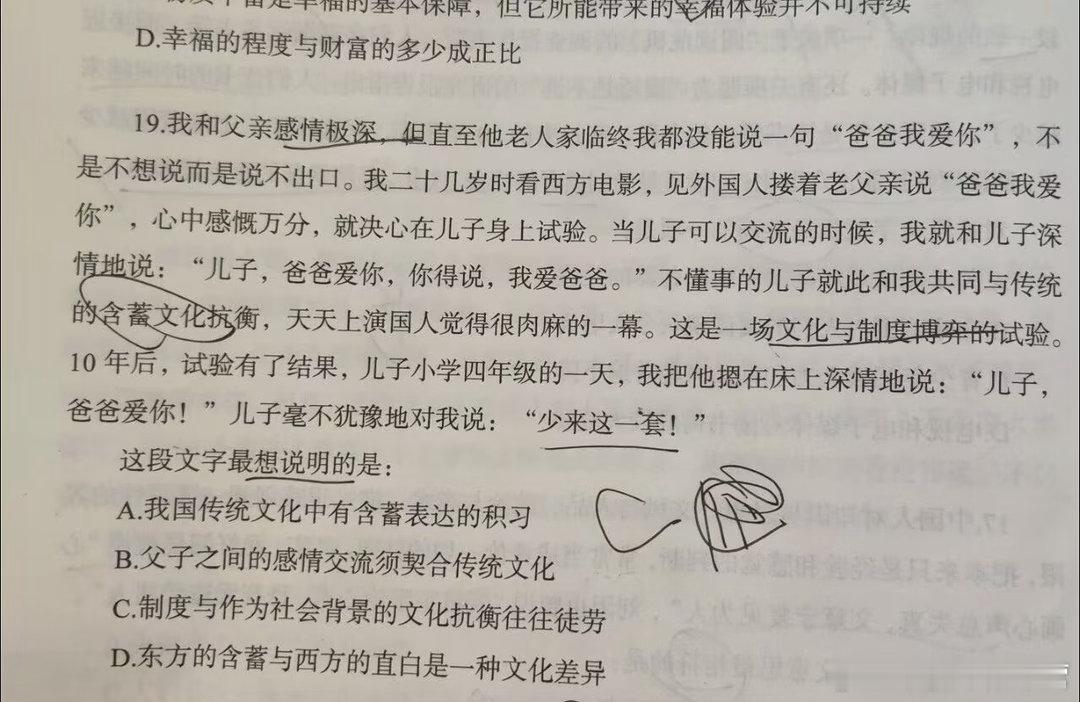 是幸福的基本保障，但它所能带来的幸福体验并不可持续
D.幸福的程度与财富的多少成正比
19.我和父亲感情极深，但直至他老人家临终我都没能说一句“爸爸我爱你”，不
是不想说而是说不出口。我二十几岁时看西方电影，见外国人搂着老父亲说“爸爸我爱
你”，心中感慨万分，就决心在儿子身上试验。当儿子可以交流的时候，我就和儿子深
情地说：“儿子，爸爸爱你，你得说，我爱爸爸。”不懂事的儿子就此和我共同与传统
的含蓄文化抗衡，天天上演国人觉得很肉麻的一幕。这是一场文化与制度博弈的试验。
10 年后，试验有了结果，儿子小学四年级的一天，我把他摁在床上深情地说：“儿子，
爸爸爱你！”儿子毫不犹豫地对我说：“少来这一套！”
这段文字最想说明的是：
A.我国传统文化中有含蓄表达的积习
B.父子之间的感情交流须契合传统文化
C.制度与作为社会背景的文化抗衡往往徒劳
D.东方的含蓄与西方的直白是一种文化差异